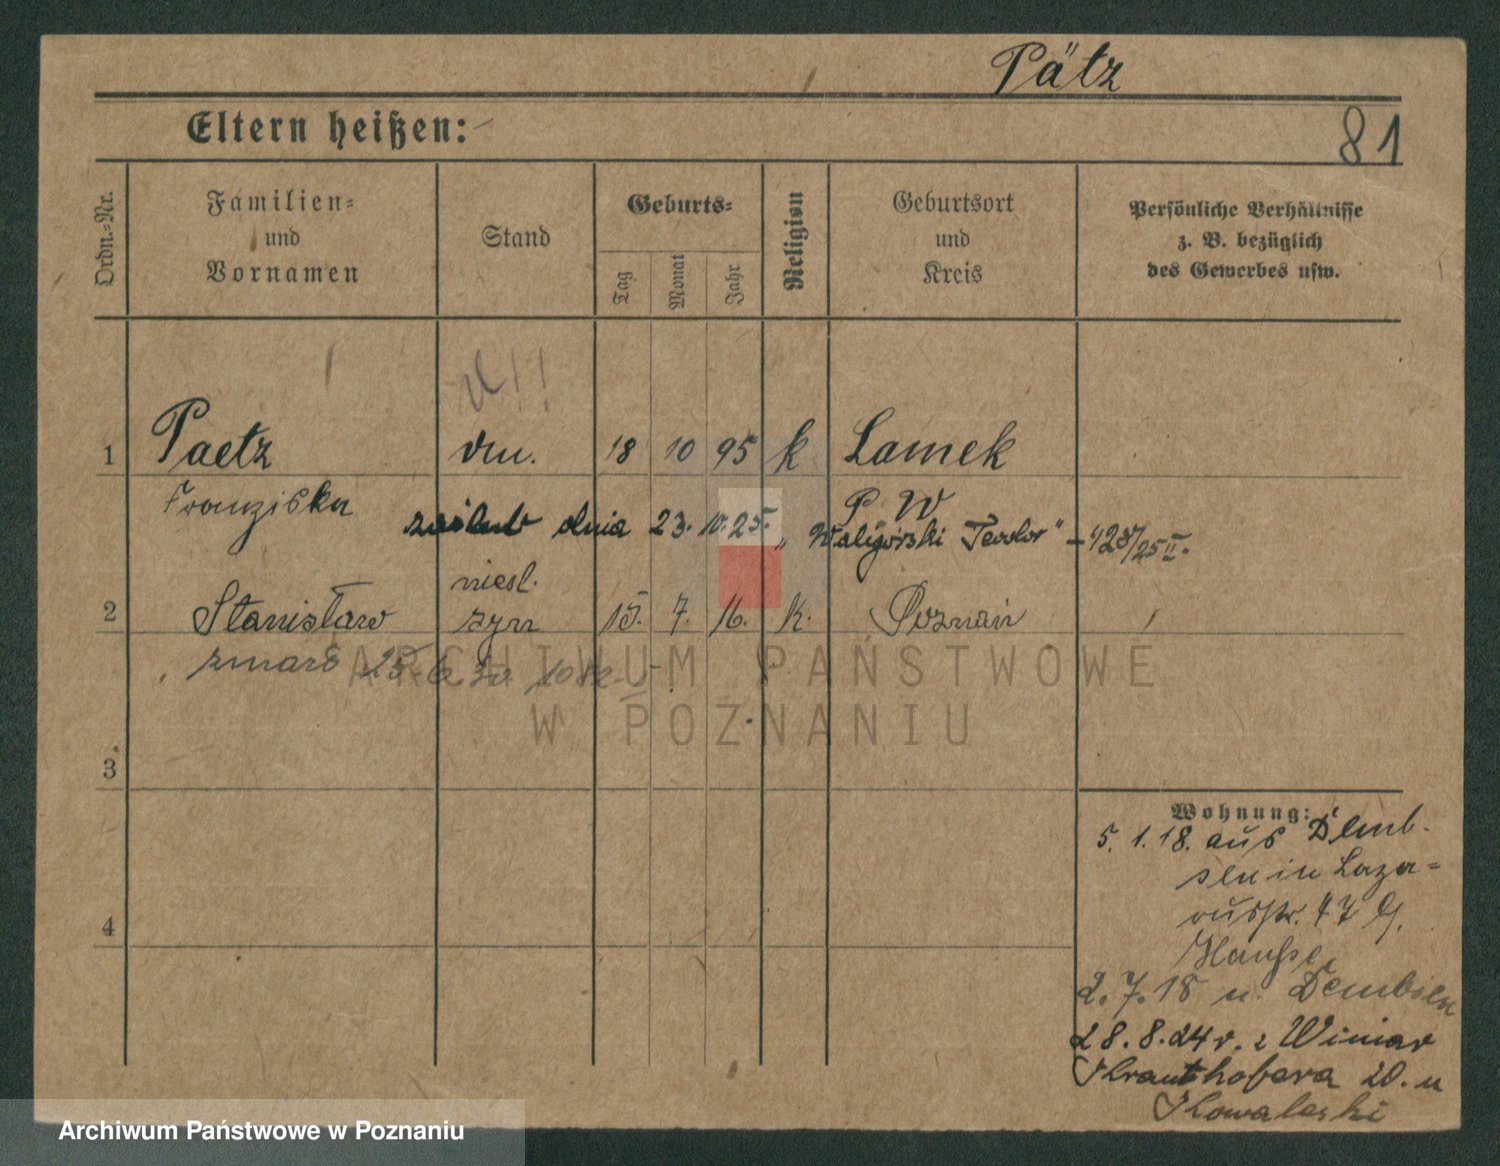 Pätz
Eltern heißen:
81
Ordn.-Nr.
Familien-
und
Vornamen
Stand
Geburts-
Tag
Monat
Jahr
Religion
Geburtsort
und
Kreis
Persönliche Verhältnisse
z. B. bezüglich
des Gewerbes usw.
1 Paetz 18 10 95 k Lamek
Franziska
P W
zaślub dnia 23. 10. 25. „Waligórski Teodor" – 428/25 II.
niesl.
2 Stanisław syn 15. 7. 16. k. Poznań
zmarł 25. 6 30
3
4
Wohnung:
5. 1. 18. aus Demb-
sen in Laza-
russtr. 47 b/
2. 7. 18 n. Dembsen
28. 8. 24 r. z Winiar
Krauthofera 20. u
Kowaleski
ARCHIWUM PAŃSTWOWE
W POZNANIU
Archiwum Państwowe w Poznaniu